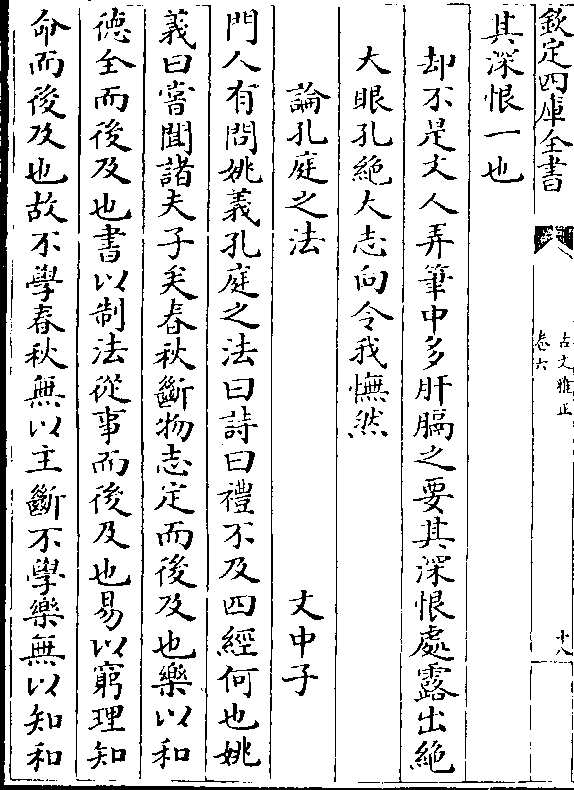 欽定四庫全書
古文雅正
卷六
十八
其深恨一也
却不是文人弄筆中多肝膈之要其深恨處露出絶
大眼孔絶大志向令我憮然
論孔庭之法 文中子
門人有問姚義孔庭之法曰詩曰禮不及四經何也姚
義曰嘗聞諸夫子矣春秋斷物志定而後及也樂以和
德全而後及也書以制法從事而後及也易以窮理知
命而後及也故不學春秋無以主斷不學樂無以知和